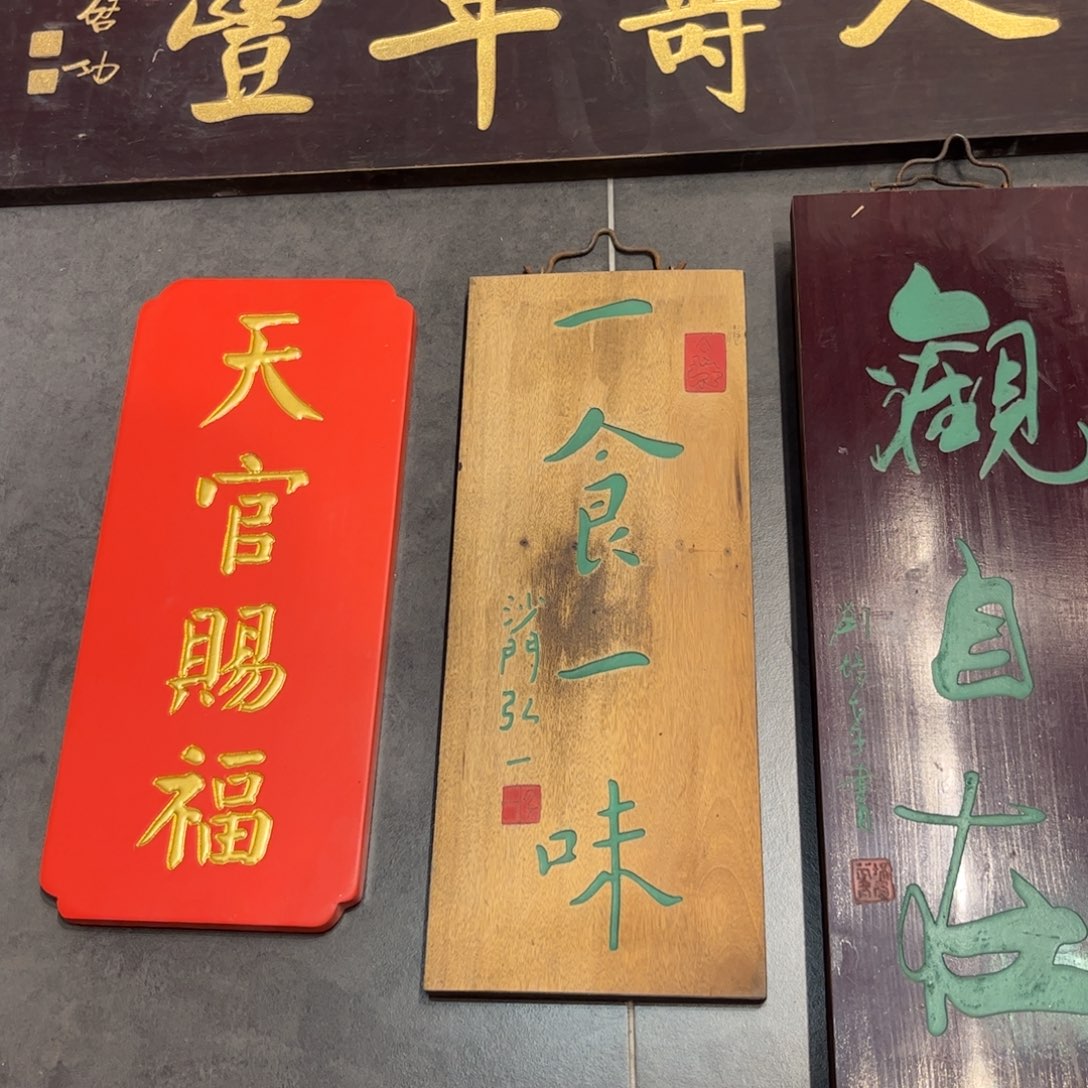 人壽年豐
启功
觀自在
一食一味
沙門弘一
天官賜福